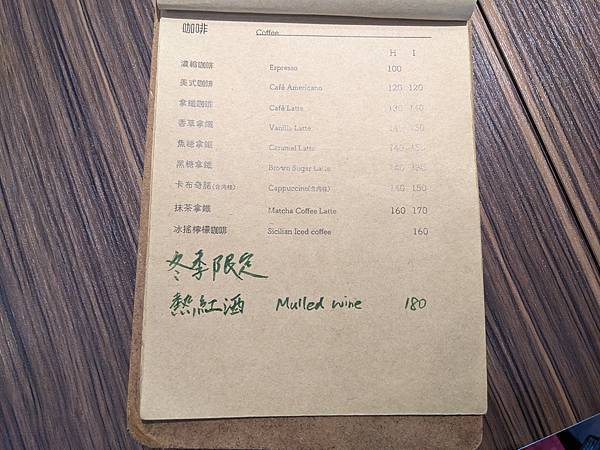 咖啡 Coffee
H I
濃縮咖啡 Espresso 100
美式咖啡 Café Americano 120 120
拿鐵咖啡 Café Latte 130 140
香草拿鐵 Vanilla Latte 150
焦糖拿鐵 Caramel Latte 140 150
黑糖拿鐵 Brown Sugar Latte 140 150
卡布奇諾(含肉桂) Cappuccino(含肉桂) 140 150
抹茶拿鐵 Matcha Coffee Latte 160 170
冰搖檸檬咖啡 Sicilian Iced coffee 160
冬季限定
熱紅酒 Mulled wine 180